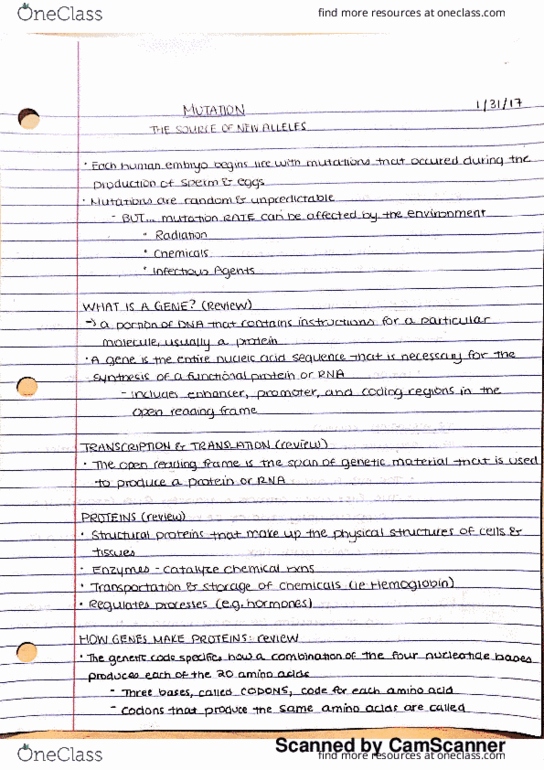 OneClass
find more resources at oneclass.com
MUTATION
1/31/17
THE SOURCE OF NEW ALLELES
• Each human embryo begins life with mutations that occured during the
production of sperm & eggs
• Mutations are random & unpredictable
- BUT... mutation RATE can be affected by the environment
• Radiation
• Chemicals
• Infectious Agents
WHAT IS A GENE? (Review)
→ a portion of DNA that contains instructions for a particular
molecule, usually a protein
• A gene is the entire nucleic acid sequence that is necessary for the
synthesis of a functional protein or RNA
- includes enhancer, promoter, and coding regions in the
open reading frame
TRANSCRIPTION & TRANSLATION (review)
• The open reading frame is the span of genetic material that is used
to produce a protein or RNA
PROTEINS (review)
• Structural proteins that make up the physical structures of cells &
tissues
• Enzymes - catalyze chemical rxns
• Transportation & storage of chemicals (ie Hemoglobin)
• Regulates processes (e.g. hormones)
HOW GENES MAKE PROTEINS: review
• The genetic code specifies how a combination of the four nucleotide bases
produces each of the 20 amino acids
- Three bases, called CODONS, code for each amino acid
- Codons that produce the same amino acids are called
Scanned by CamScanner
OneClass
find more resources at oneclass.com